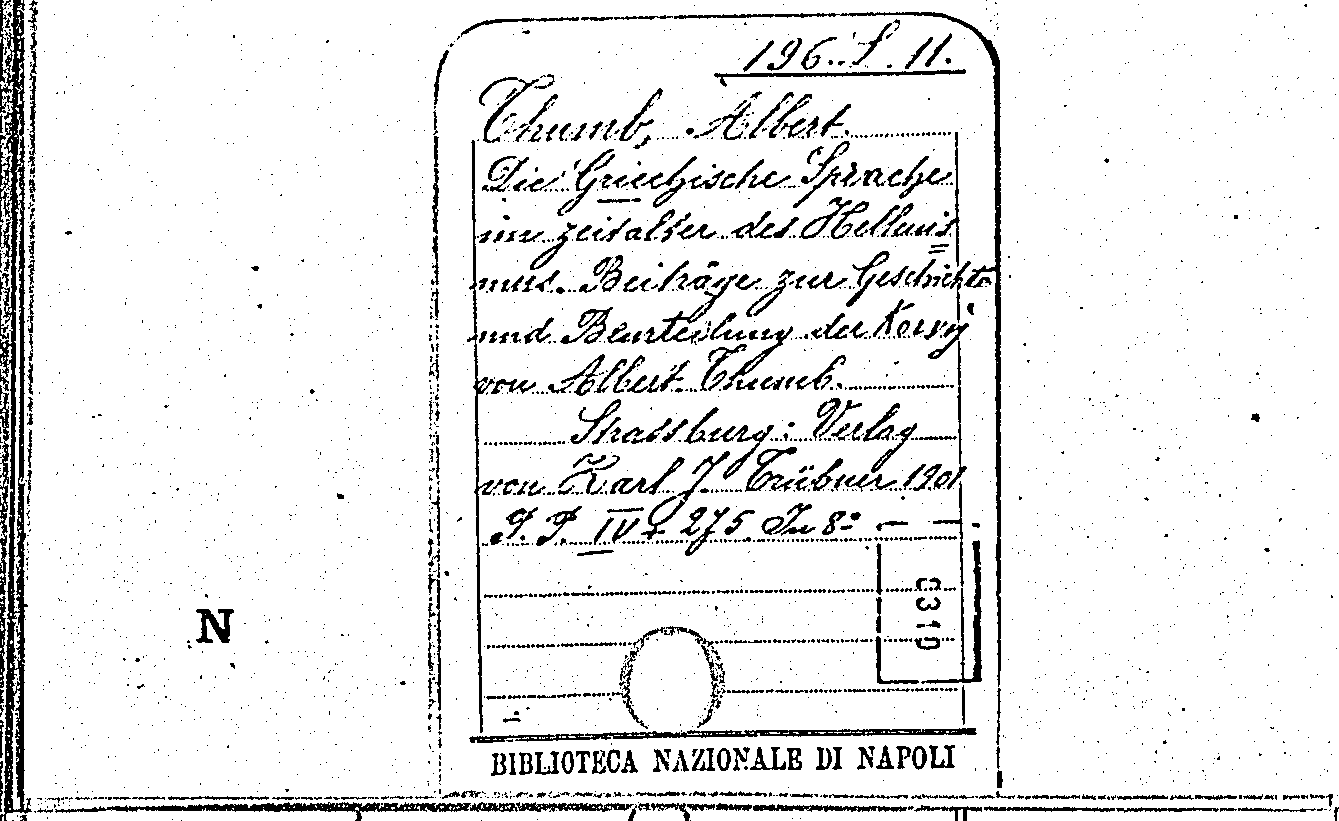 196. S. 11.
Thumb, Albert.
Die Griechische Sprache
im zeitalter des Hellenis
mus. Beiträge zur Geschichte
und Beurteilung der Κοινή
von Albert Thumb.
Strassburg: Verlag
von Karl J. Trübner 1901
P. P. IV + 275. In 8º
8310
N
BIBLIOTECA NAZIONALE DI NAPOLI